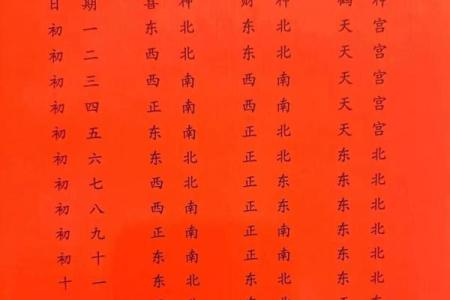 日 期 喜 神 财 神 鹤 神
初 一 东 北 东 北 天 宫
初 二 西 北 东 北 天 宫
初 三 西 南 西 南 天 宫
初 四 正 南 西 南 天 宫
初 五 东 南 正 北 天 宫
初 六 东 北 正 北 东 北
初 七 西 北 正 东 东 北
初 八 西 南 正 东 东 北
初 九 正 南 正 南 东 北
初 十 东 南 正 南 东 北
十 一 东 北 东 北 东 北